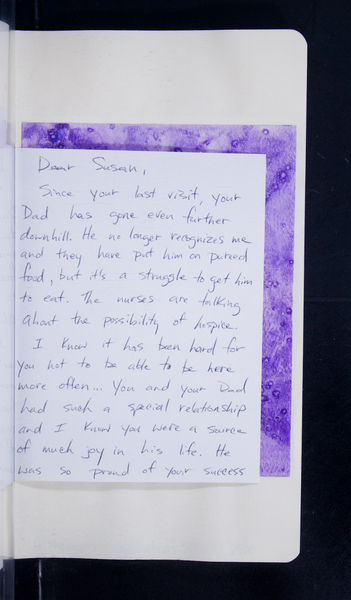 Dear Susan,
Since your last visit, your
Dad has gone even further
downhill. He no longer recognizes me
and they have put him on pureed
food, but it's a struggle to get him
to eat. The nurses are talking
about the possibility of hospice.
I know it has been hard for
you not to be able to be here
more often... You and your Dad
had such a special relationship
and I know you were a source
of much joy in his life. He
was so proud of your success